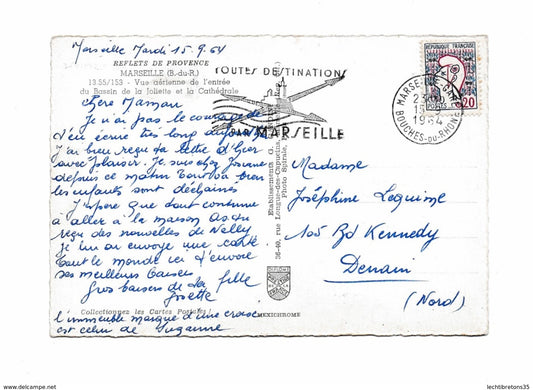 Marseille Mardi 15.9.64
REFLETS DE PROVENCE
MARSEILLE (B.-du-R.)
13.55/153 - Vue aérienne de l'entrée
du Bassin de la Joliette et la Cathédrale
Chère Maman
Je n'ai pas le courage de
t'en écrire très long aujourd'hui
J'ai bien reçu ta lettre d'hier
avec plaisir. Je suis chez Josiane
depuis ce matin
les enfants sont déchaînés
J'espère que tout continue
à aller à la maison As-tu
reçu des nouvelles de Nelly
je lui ai envoyé une carte
Tout le monde ici t'envoie
ses meilleurs baisers
Gros baisers de ta fille
Josette
Collectionnez les Cartes Postales !
l'immeuble marqué d'une croix
est celui de Suzanne
TOUTES DESTINATIONS
PAR MARSEILLE
Etablissements
36-40, rue Longue-des-Capucins,
Photo Spirale,
MEXICHROME
REPUBLIQUE FRANCAISE
POSTES
0,20
MARSEILLE
15-9
1964
BOUCHES-DU-RHONE
Madame
Joséphine Lequime
105 Bd Kennedy
Denain
(Nord)
www.delcampe.net
lechtibretons35